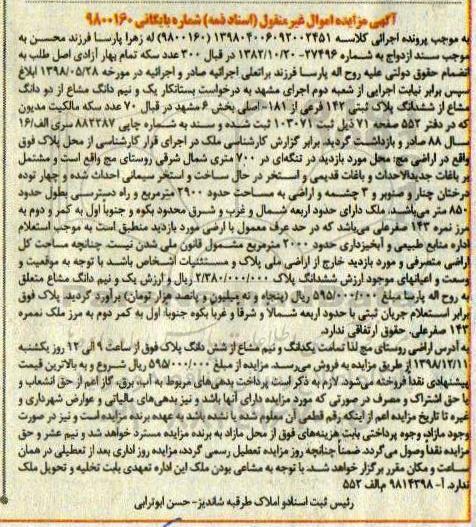 آگهی مزایده اموال غیر منقول (اسناد ذمه) شماره بایگانی ۹۸۰۰۱۶۰
به موجب پرونده اجرائی کلاسه ۱۳۹۸۰۴۰۰۶۰۹۲۰۰۲۴۵۱ (۹۸۰۰۱۶۰) له زهرا پارسا فرزند محسن به
موجب سند ازدواج به شماره ۲۷۴۹۶-۱۳۸۲/۱۰/۲۰ در قبال ۳۰۰ عدد سکه تمام بهار آزادی اصل طلب به
انضمام حقوق دولتی علیه روح اله پارسا فرزند براتعلی اجرائیه صادر و اجرائیه در مورخه ۱۳۹۸/۰۵/۲۸ ابلاغ
سپس برابر نیابت اجرایی از شعبه دوم اجرای مشهد به درخواست بستانکار یک و نیم دانگ مشاع از دو دانگ
مشاع از ششدانگ پلاک ثبتی ۱۴۲ فرعی از ۱۸۱- اصلی بخش ۶ مشهد در قبال ۷۰ عدد سکه مالکیت مدیون
که در دفتر ۵۵۲ صفحه ۷۱ ذیل ثبت ۱۰۳۰۷۱ ثبت شده و سند به شماره چاپی ۸۸۲۳۸۷ سری الف/۱۶
سال ۸۸ صادر و بازداشت گردید. برابر گزارش کارشناسی ملک در اجرای قرار کارشناسی از محل پلاک فوق
واقع در اراضی مچ: محل مورد بازدید در تنگه‌ای در ۷۰۰ متری شمال شرقی روستای مچ واقع است و مشتمل
بر باغات جدیدالاحداث و باغات قدیمی و استخر در حال ساخت و استخر سیمانی احداث شده و چهار توده
درختان چنار و صنوبر و ۳ چشمه و اراضی به مساحت حدود ۲۹۰۰ مترمربع و راه دسترسی بطول حدود
۸۵۰ متر می‌باشد. ملک دارای حدود اربعه شمال و غرب و شرق محدود بکوه و جنوباً اول به کمر و دوم به
مرز نمره ۱۴۳ صفرعلی می‌باشد که در حد عرف معمول با ارضی مورد بازدید منطبق است به موجب استعلام
اداره منابع طبیعی و آبخیزداری حدود ۲۰۰۰ مترمربع مشمول قانون ملی شدن نیست. چنانچه مساحت کل
اراضی متصرفی و مورد بازدید خارج از اراضی ملی پلاک و مستثنیات اشخاص باشد با توجه به موقعیت و
وسعت و اعیانهای موجود ارزش ششدانگ پلاک ۲/۳۸۰/۰۰۰/۰۰۰ ریال و ارزش یک و نیم دانگ مشاع متعلق
به روح اله پارسا مبلغ ۵۹۵/۰۰۰/۰۰۰ ریال (پنجاه و نه میلیون و پانصد هزار تومان) برآورد گردید. پلاک فوق
برابر استعلام جریان ثبتی با حدود اربعه شمالاً و شرقا و غربا بکوه جنوبا: اول به کمر دوم به مرز ملک نمره
۱۴۳ صفرعلی. حقوق ارتفاقی ندارد.
به آدرس اراضی روستای مچ لذا تمامت یکدانگ و نیم مشاع از شش دانگ پلاک فوق از ساعت ۹ الی ۱۲ روز یکشنبه
۱۳۹۸/۱۲/۱۱ از طریق مزایده به فروش می‌رسد. مزایده از مبلغ ۵۹۵/۰۰۰/۰۰۰ ریال شروع و به بالاترین قیمت
پیشنهادی نقداً فروخته می‌شود. لازم به ذکر است پرداخت بدهی‌های مربوط به آب، برق، گاز اعم از حق انشعاب و
یا حق اشتراک و مصرف در صورتی که مورد مزایده دارای آنها باشد و نیز بدهی‌های مالیاتی و عوارض شهرداری و
غیره تا تاریخ مزایده اعم از اینکه رقم قطعی آن معلوم شده یا نشده باشد به عهده برنده مزایده است و نیز در صورت
وجود مازاد، وجوه پرداختی بابت هزینه‌های فوق از محل مازاد به برنده مزایده مسترد خواهد شد و نیم عشر و حق
مزایده نقداً وصول می‌گردد. ضمناً چنانچه روز مزایده تعطیل رسمی گردد، مزایده روز اداری بعد از تعطیلی در همان
ساعت و مکان مقرر برگزار خواهد شد. با توجه به مشاعی بودن ملک این اداره تعهدی بابت تخلیه و تحویل ملک
ندارد. آ- ۹۸۱۴۳۹۸ م.الف ۵۵۲
رئیس ثبت اسناد و املاک طرقبه شاندیز- حسن ابوترابی